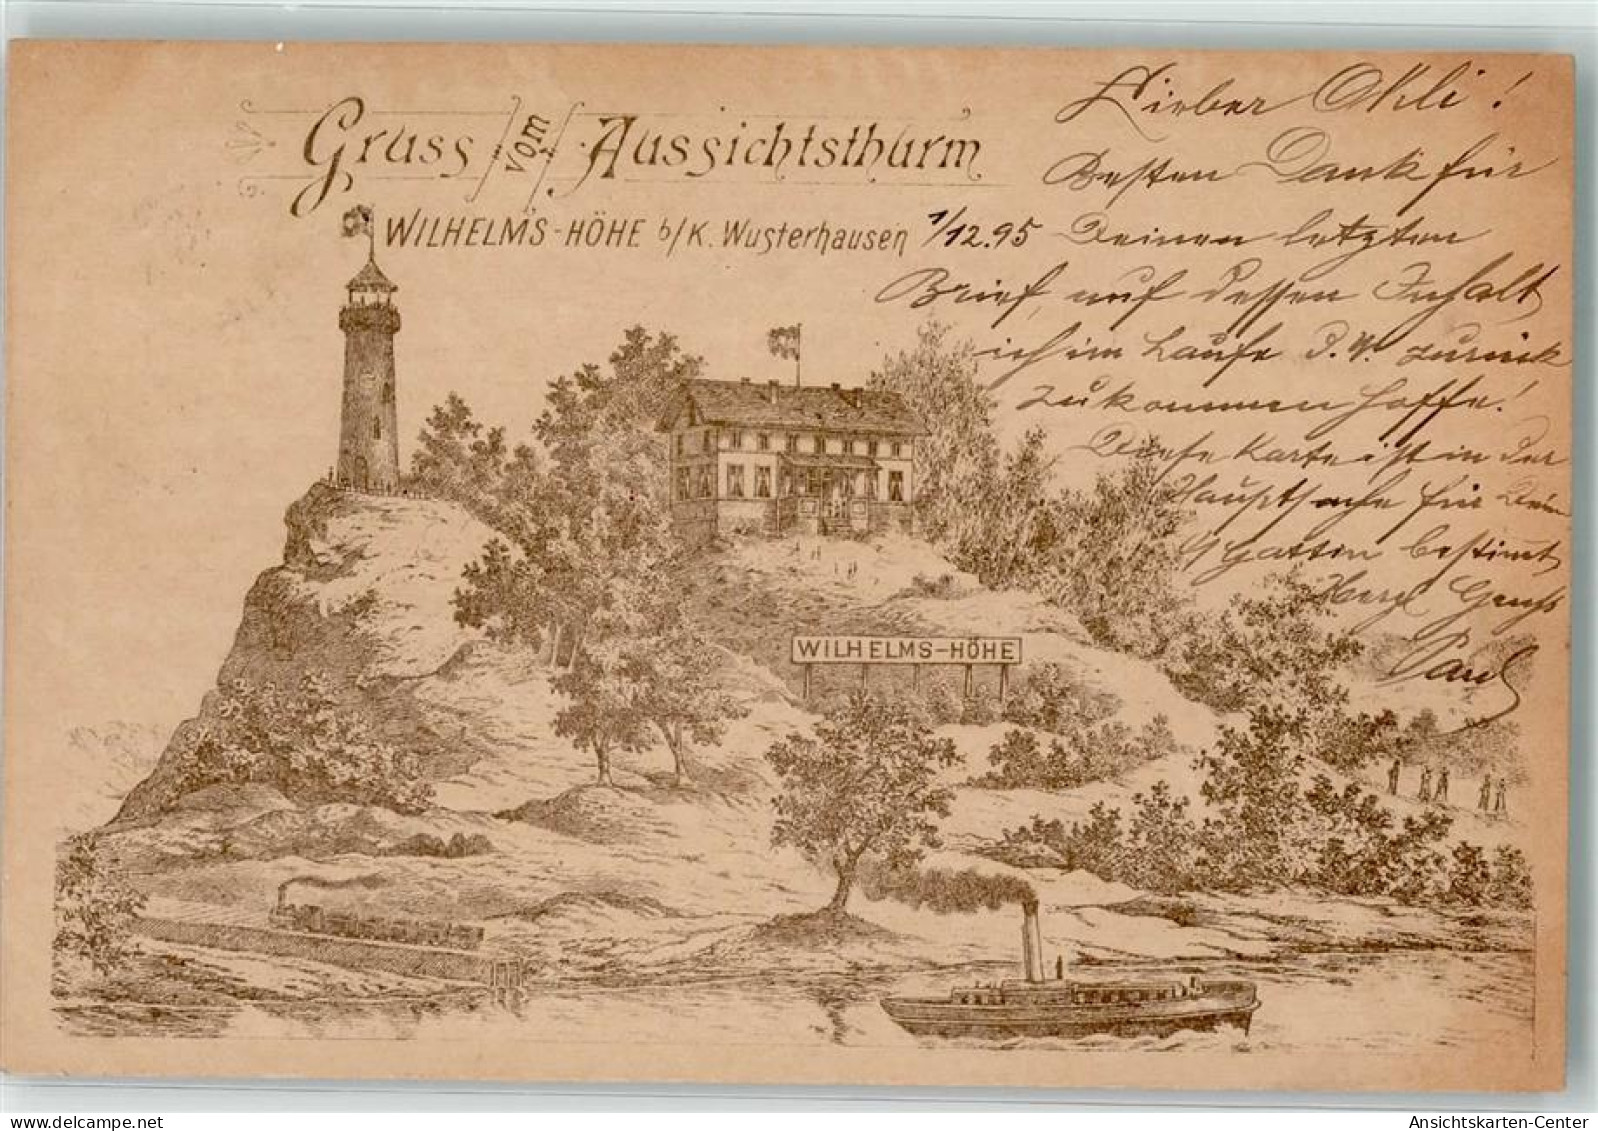 Gruss vom Aussichtsthurm
WILHELM'S-HÖHE b/K. Wusterhausen
1/12.95
Lieber
Besten Dank für
Deinen letzten
Brief, auf dessen Inhalt
ich im Laufe d. W. zurück
zukommen hoffe!
Diese Karte ist in der
Hauptsache für Dein
Gattin bestimt
Herzl Gruß
Paul
WILHELMS-HÖHE
Ansichtskarten-Center